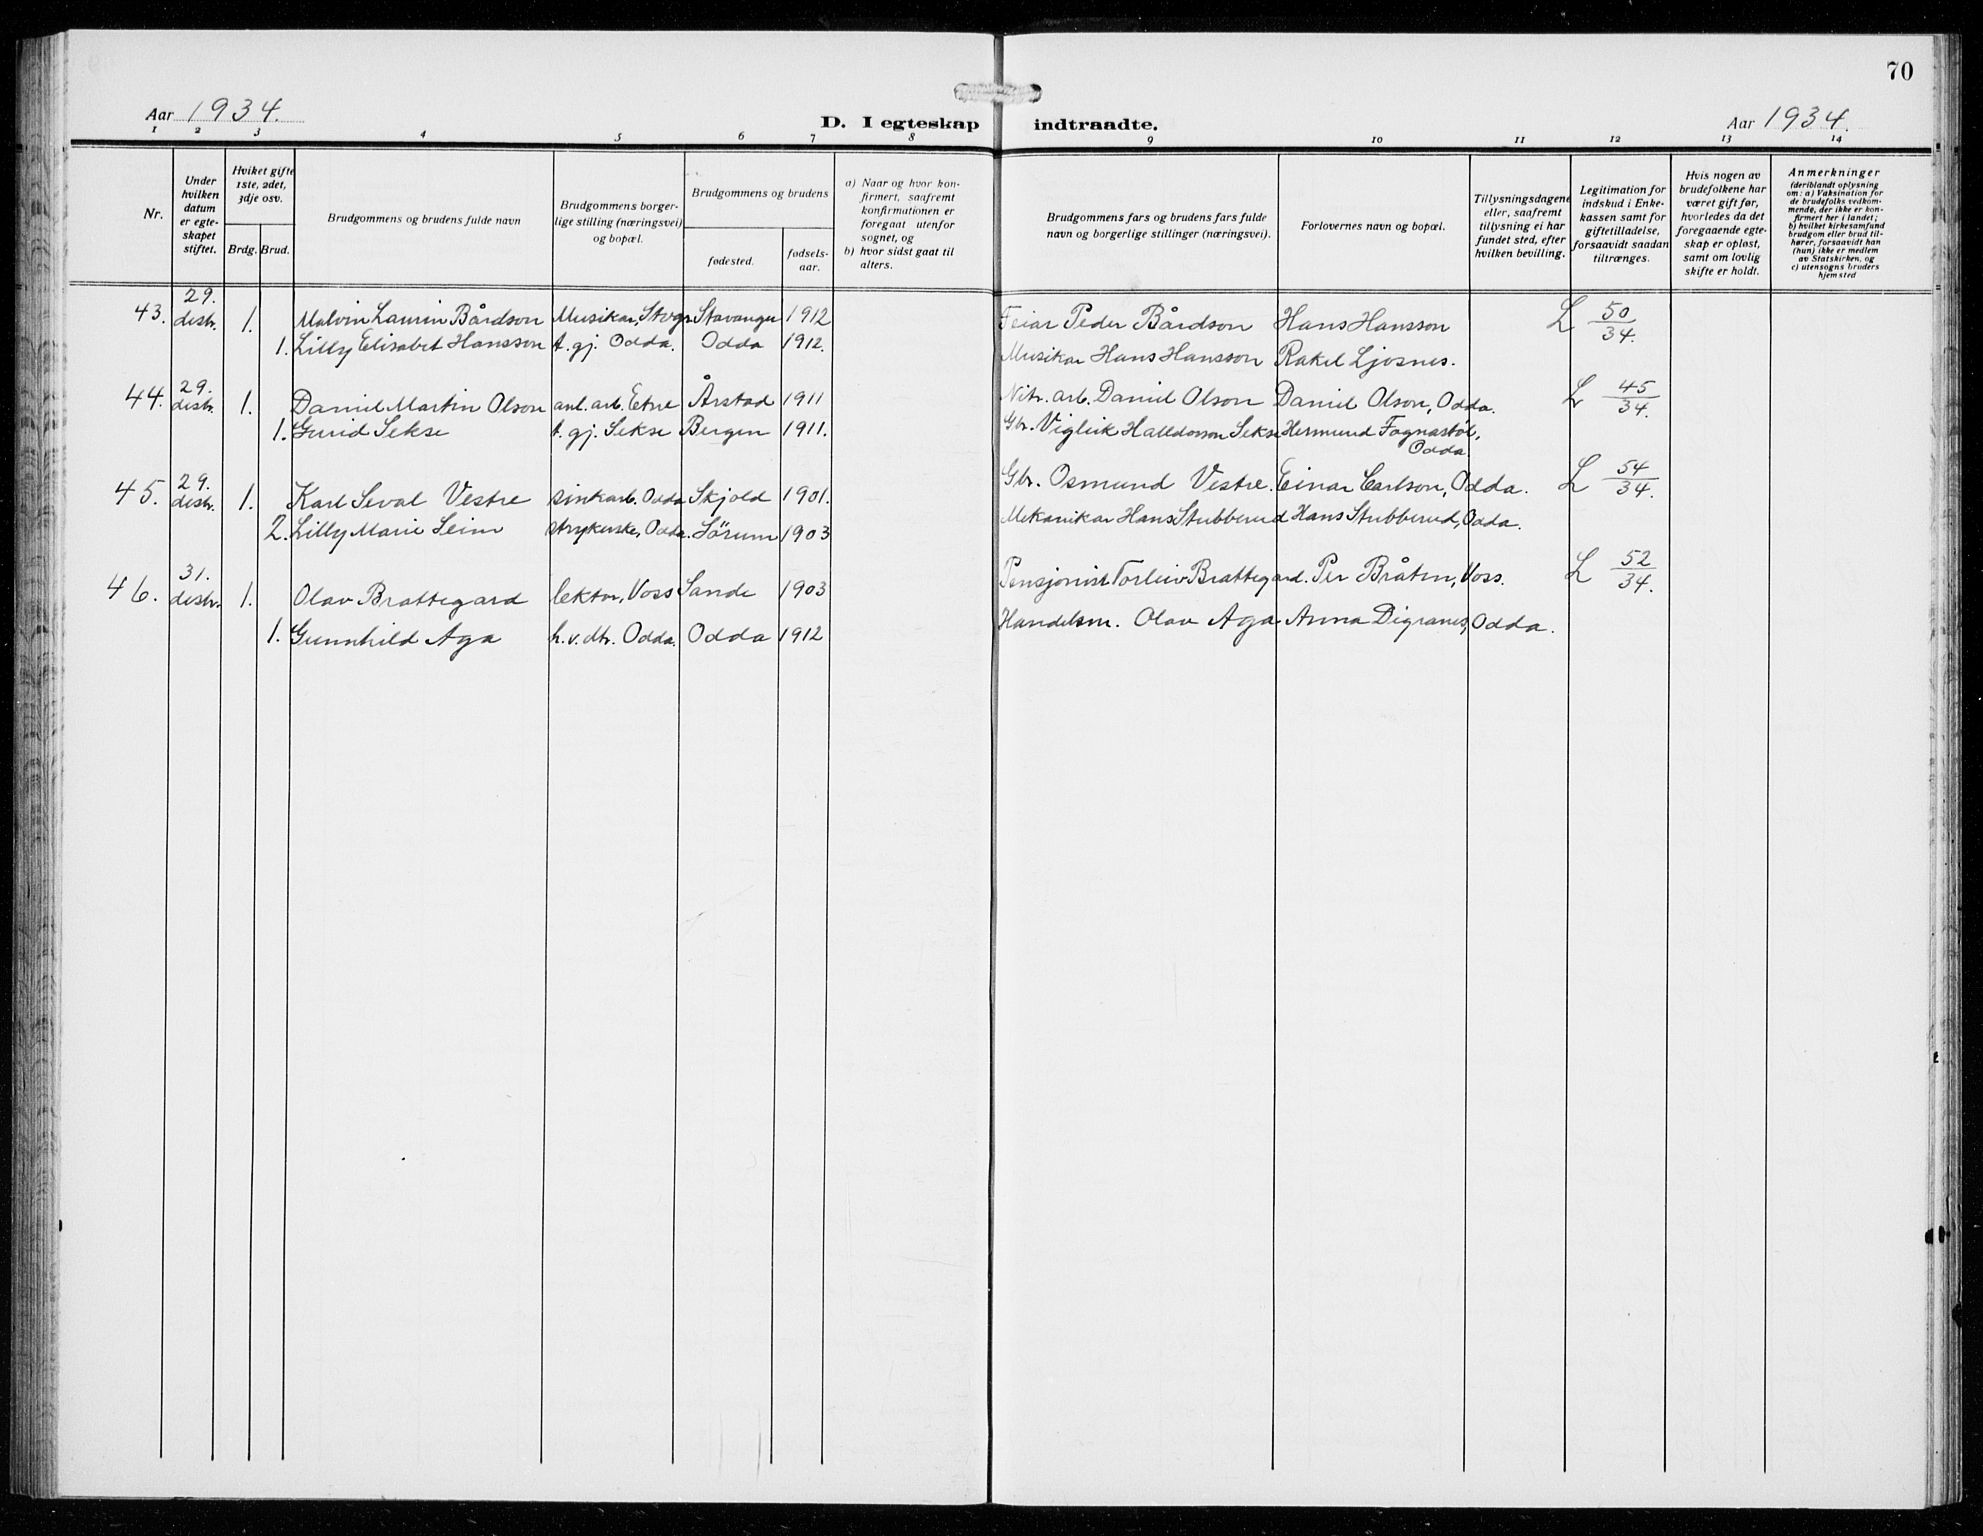 70
Aar 1934.
D. I egteskap indtraadte.
Aar 1934.
1 2 3 4 5 6 7 8 9 10 11 12 13 14
Nr.
Under hvilken datum er egteskapet stiftet.
Hviket gifte 1ste, 2det, 3dje osv.
Brdg. Brud.
Brudgommens og brudens fulde navn
Brudgommens borgerlige stilling (næringsvei) og bopæl.
Brudgommens og brudens
fødested.
fødselsaar.
a) Naar og hvor konfirmert, saafremt konfirmationen er foregaat utenfor sognet, og
b) hvor sidst gaat til alters.
Brudgommens fars og brudens fars fulde navn og borgerlige stillinger (næringsvei).
Forlovernes navn og bopæl.
Tillysningsdagene eller, saafremt tillysning ei har fundet sted, efter hvilken bevilling.
Legitimation for indskud i Enkekassen samt for giftetilladelse, forsaavidt saadan tiltrænges.
Hvis nogen av brudefolkene har været gift før, hvorledes da det foregaaende egteskap er opløst, samt om lovlig skifte er holdt.
Anmerkninger (deriblandt oplysning om: a) Vaksination for de brudefolks vedkommende, der ikke er konfirmert her i landet; b) hvilket kirkesamfund brudgom eller brud tilhører, forsaavidt han (hun) ikke er medlem av Statskirken, og c) utensogns bruders hjemsted
43. 29. desbr. 1. Malvin Laurin Bårdson Musikar, Stvgr. Stavanger 1912 Feiar Peder Bårdson Hans Hansson L 50/34.
1. Lilly Elisabet Hansson t. gj. Odda. Odda 1912. Musikar Hans Hansson Rakel Ljosnes.
44. 29. desbr. 1. Daniel Martin Olson anl. arb. Etne Årstad 1911 Nitr. arb. Daniel Olson Daniel Olson, Odda. L 45/34.
1. Gurid Sekse t. gj. Sekse Bergen 1911. Gbr. Vigleik Halldorson Sekse Hermund Fognastøl, Odda
45. 29. desbr. 1. Karl Seval Vestre sinkarb. Odda Skjold 1901. Gbr. Osmund Vestre. Einar Carlson, Odda. L 54/34.
2. Lilly Marie Seim strykerske, Odda. Sørum 1903 Mekanikar Hans Stubberud Hans Stubberud, Odda.
46. 31. desbr. 1. Olav Brattegard lektor, Voss Sande 1903 Pensjonist Torleiv Brattegard. Per Bråten, Voss. L 52/34.
1. Gunnhild Aga h.v. dtr. Odda. Odda 1912 Handelsm. Olav Aga Anna Digranes, Odda.